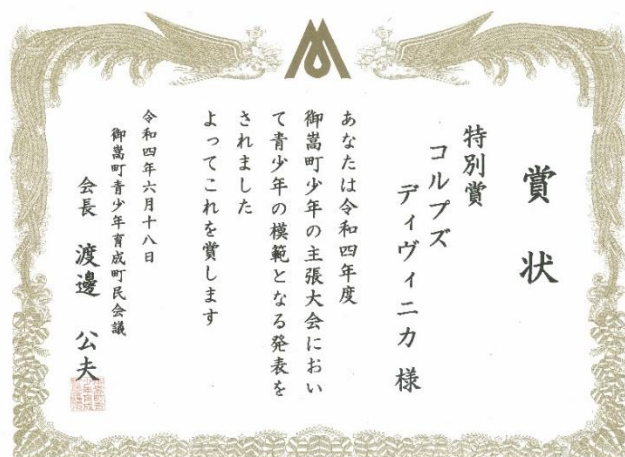 賞状
特別賞
コルプズ
ディヴィニカ 様
あなたは令和四年度
御嵩町少年の主張大会におい
て青少年の模範となる発表を
されました
よってこれを賞します
令和四年六月十八日
御嵩町青少年育成町民会議
会長 渡邉 公夫